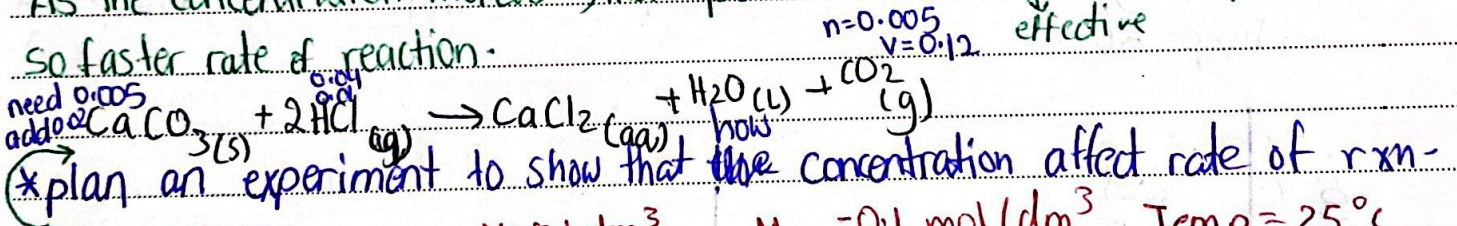 As the concentration
so faster rate of reaction.
n=0.005
V=0.12
effective
need 0.005
add 0.02
0.04
0.01
CaCO3(s) + 2HCl(g) → CaCl2(aq) + H2O(l) + CO2(g)
how
*plan an experiment to show that the concentration affect rate of rxn-
-0.1 mol/dm³ Temp = 25°C